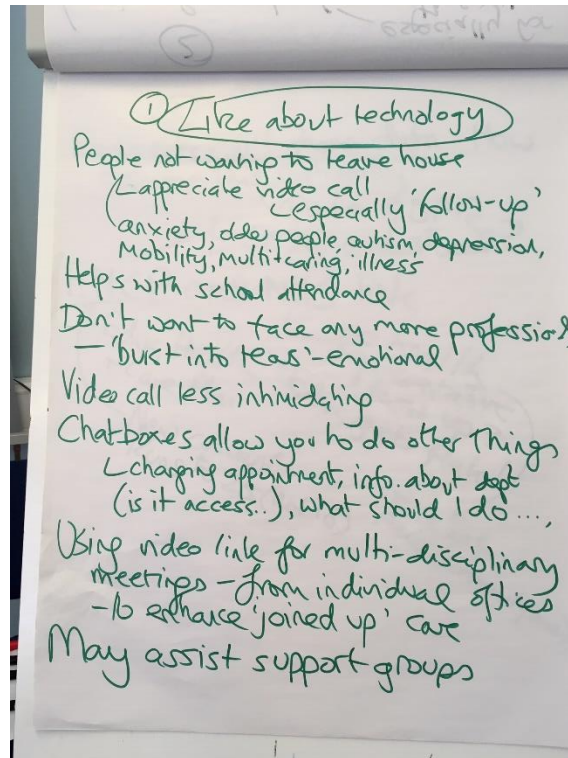 ① Like about technology
People not wanting to leave house
appreciate video call
especially 'follow-up'
anxiety, older people, autism, depression,
Mobility, multi-caring, illness
Helps with school attendance
Don't want to face any more professional
– 'burst into tears' – emotional
Video call less intimidating
Chatboxes allow you to do other things
changing appointment, info. about dept
(is it access..), what should I do ....,
Using video link for multi-disciplinary
meetings – from individual offices
– to enhance 'joined up' care
May assist support groups